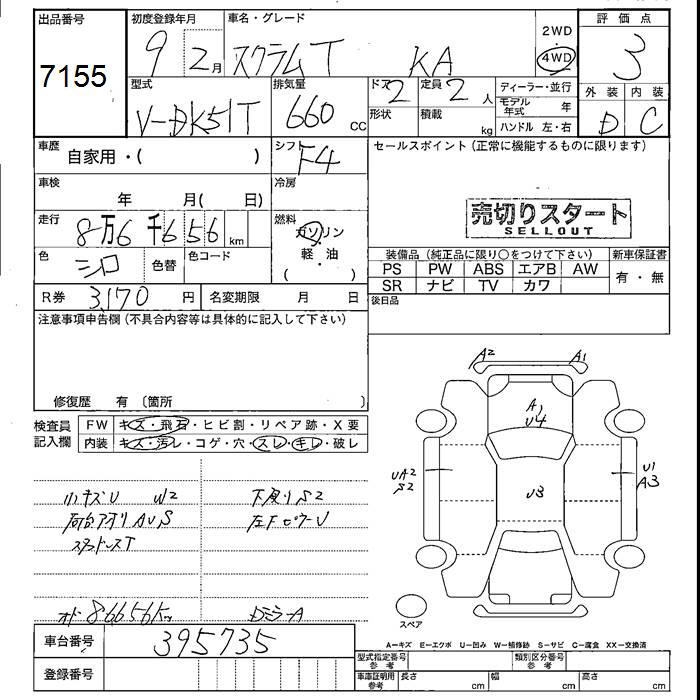 出品番号 初度登録年月 車名・グレード 2WD 評価点
7155 9 2月 スクラムT KA 4WD 3
型式 排気量 ドア 2 定員 2 人 ディーラー・並行 外装 内装
V-DK51T 660 CC 形状 積載 kg モデル年式 年 D C
ハンドル 左・右
車歴 自家用・( ) シフト F4 セールスポイント(正常に機能するものに限ります)
車検 年 月( 日) 冷房
売切りスタート
走行 8万6千656 km 燃料 ガソリン
SELLOUT
軽・油
( )
色 シロ 色替 色コード 装備品(純正品に限り○をつけて下さい) 新車保証書
PS PW ABS エアB AW 有・無
SR ナビ TV カワ
R券 3,170 円 名変期限 月 日 後日品
注意事項申告欄(不具合内容等は具体的に記入して下さい)
修復歴 有〔箇所 〕
A2 A1
A1
U4
検査員 FW キズ・飛石・ヒビ割・リペア跡・X要
記入欄 内装 キズ・汚レ・コゲ・穴・スレ・キレ・破レ
UA2 U3 U1
S2 A3
小キズU W2 下廻りS2
荷台アオリAUS 左FピラーU
オド 86656Km DミラーA
スペア
車台番号 395735
A-キズ E-エクボ U-凹み W-補修跡 S-サビ C-腐食 XX-交換済
型式指定番号 参考 類別区分番号 参考
登録番号 車庫証明用 参考 長さ cm 幅 cm 高さ cm